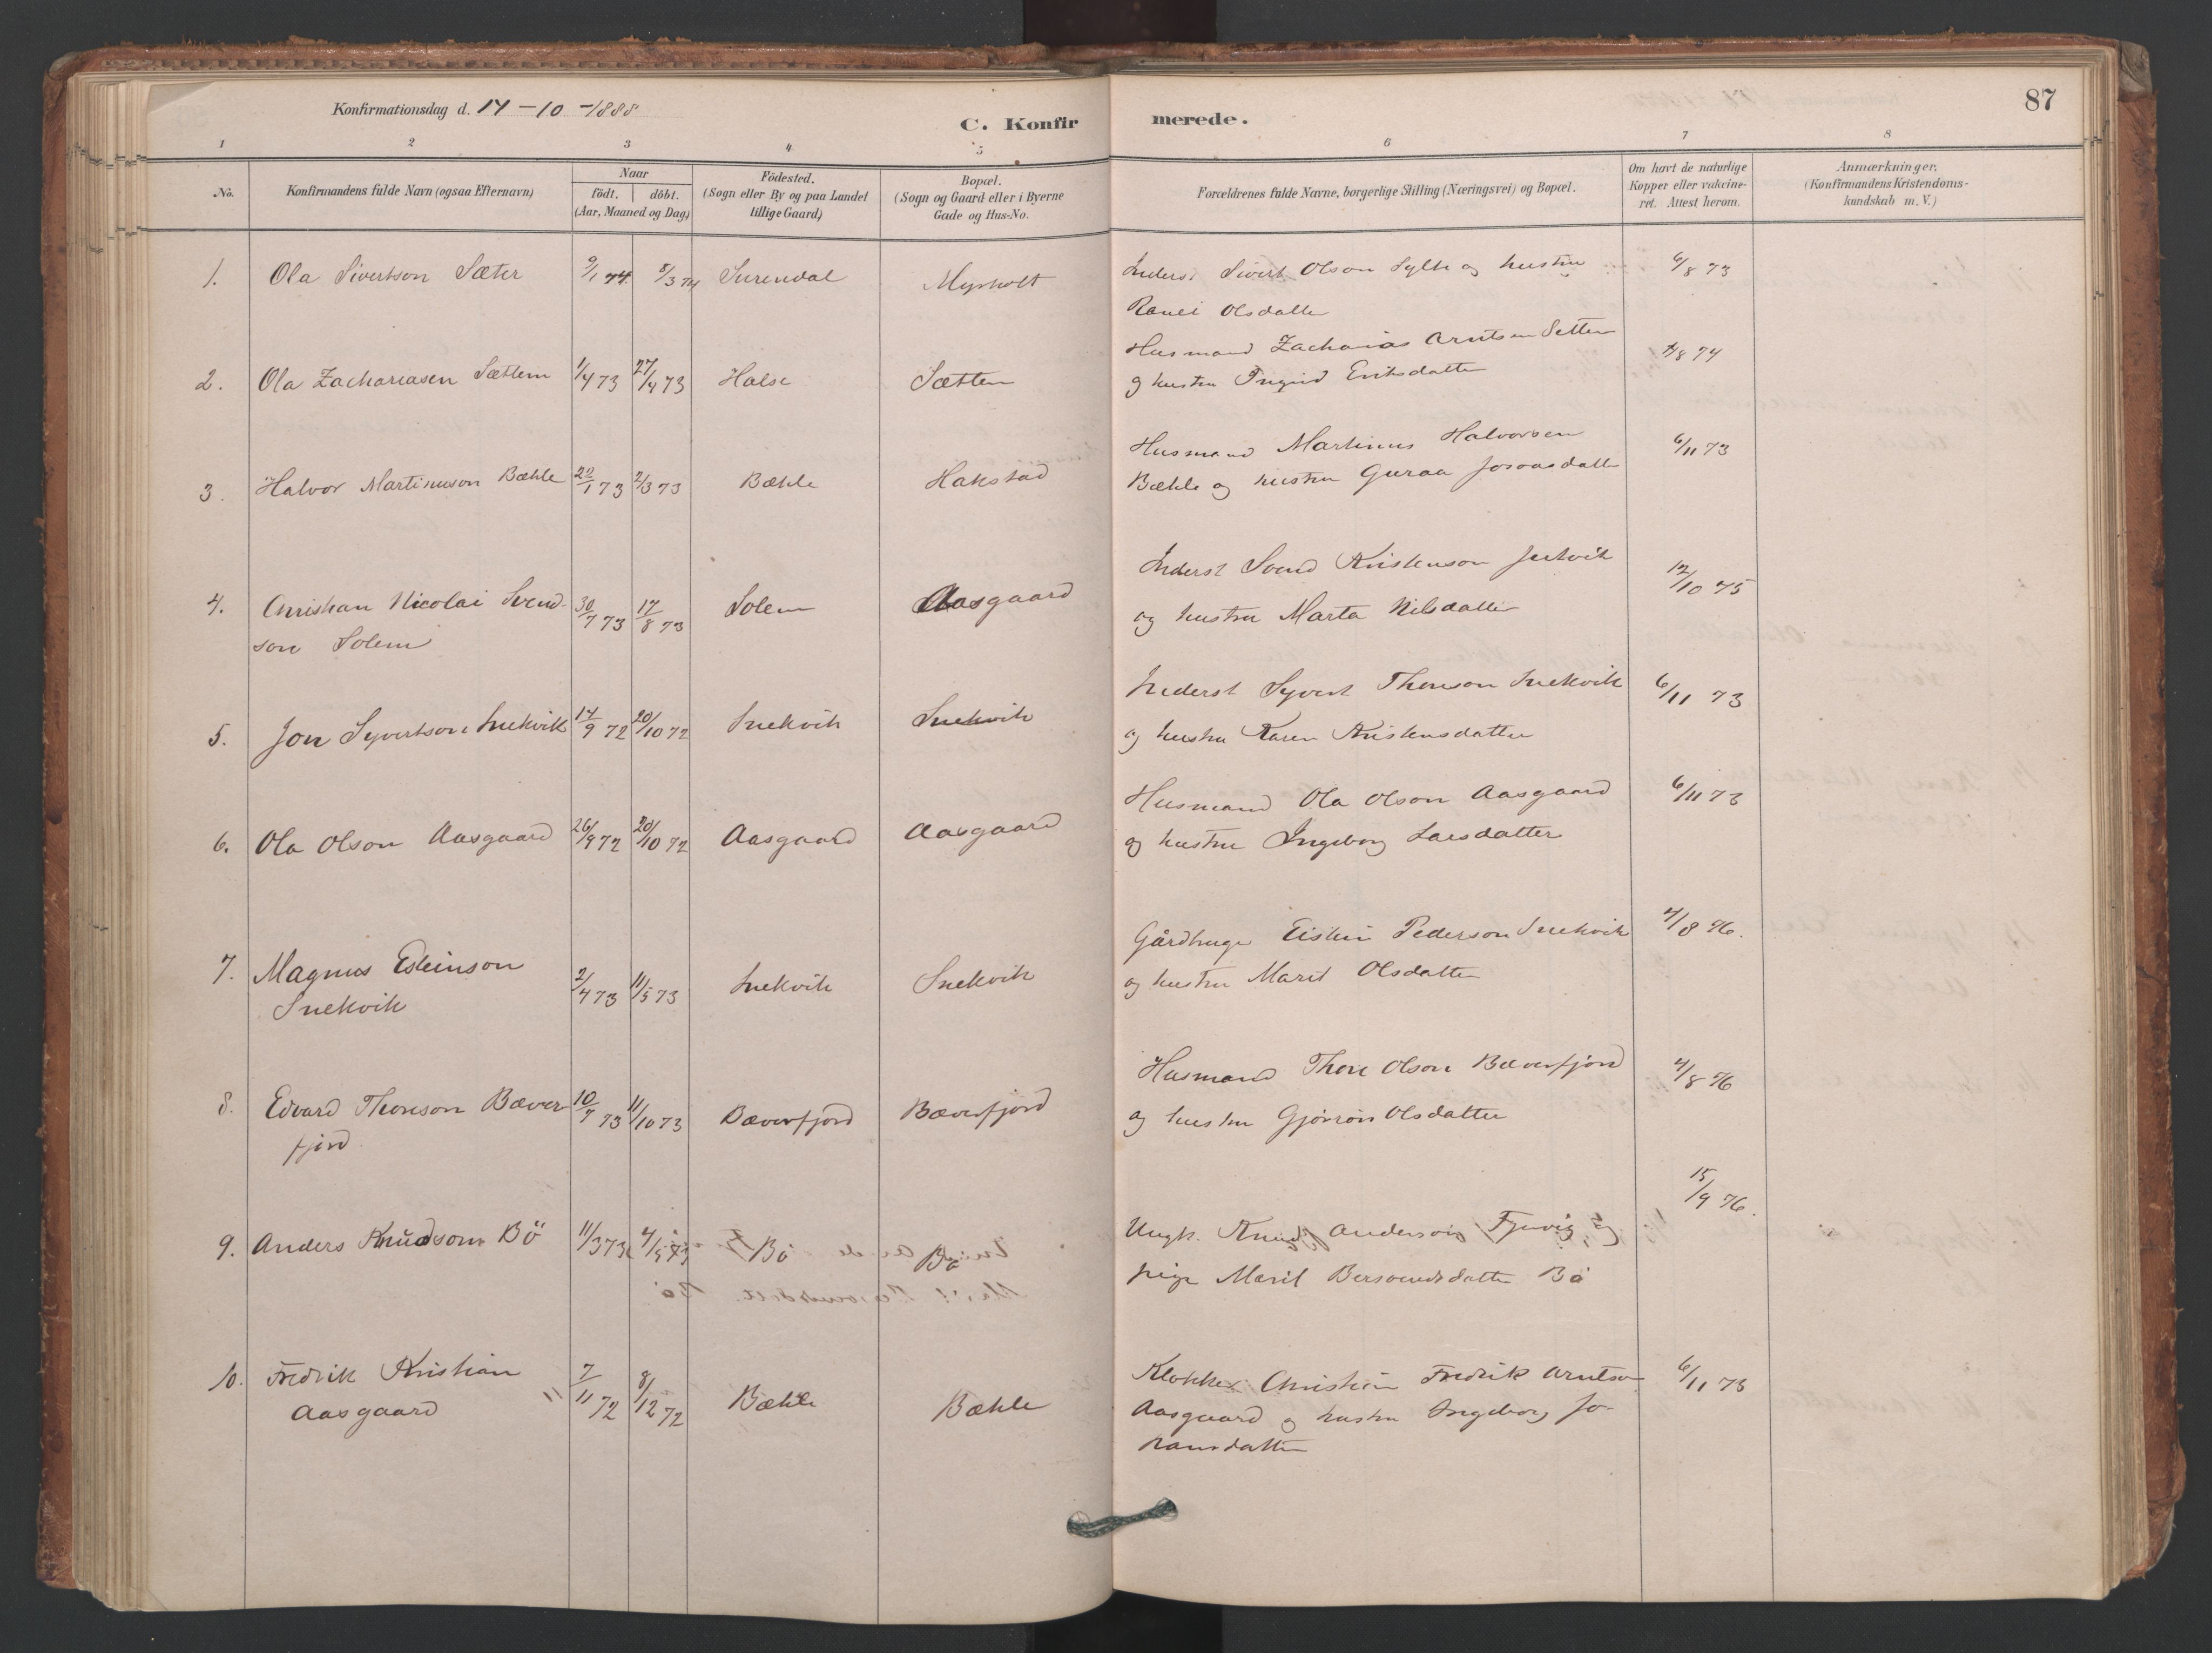 Konfirmationsdag d. 14-10-1888
C. Konfirmerede.
87
1 2 3 4 5 6 7 8
No.
Konfirmandens fulde Navn (ogsaa Efternavn)
Naar
födt. döbt.
(Aar, Maaned og Dag)
Födested.
(Sogn eller By og paa Landet
tillige Gaard)
Bopæl.
(Sogn og Gaard eller i Byerne
Gade og Hus-No.
Forældrenes fulde Navne, borgerlige Stilling (Næringsvei) og Bopæl.
Om havt de naturlige
Kopper eller vakcine-
ret. Attest herom.
Anmærkninger.
(Konfirmandens Kristendoms-
kundskab m. V.)
1. Ola Sivertson Sæter 9/1 74 8/3 74 Surendal Myrholt Inderst Sivert Olson Sylte og hustru 6/8 73
Ranei Olsdatter
2. Ola Zachariasen Sættem 1/4 73 27/4 73 Halse Sættem Husmand Zacharias Arntsen Settem 4/8 74
og hustru Ingrid Eriksdatter
3. Halvor Martinuson Bækle 22/1 73 2/3 73 Bækle Hakstad Husmand Martinus Halvorsen 6/11 73
Bækle og hustru Guraa Joraasdatter
4. Christian Nicolai Svend- 30/7 73 17/8 73 Solem Aasgaard Inderst Svend Kristenson 12/10 75
son Solem og hustru Marta Nilsdatter
5. Jon Syvertson Snekvik 14/9 72 20/10 72 Snekvik Snekvik Inderst Syvert Thoreson Snekvik 6/11 73
og hustru Karen Kristensdatter
6. Ola Olson Aasgaard 26/9 72 20/10 72 Aasgaard Aasgaard Husmand Ola Olson Aasgaard 6/11 73
og hustru Ingeborg Larsdatter
7. Magnus Esteinson 2/4 73 11/5 73 Snekvik Snekvik Gårdbruger Eistein Pederson Snekvik 4/8 76.
Snekvik og hustru Marit Olsdatter
8. Edvard Thoreson Bæver 10/7 73 11/10 73 Bæverfjord Bæverfjord Husmand Thore Olson Bæverfjord 4/8 76
fjord og hustru Gjöron Olsdatter
9. Anders Knudson Bö 11/3 73 4/5 73 Bö Bö Ungk. Knud Anderson Fjærvig og 15/9 76.
pige Marit Bersvendsdatter Bö
10. Fredrik Kristian 7/11 72 8/12 72 Bækle Bækle Klokker Christian Fredrik Arntson 6/11 73
Aasgaard Aasgaard og hustru Ingeborg Jo-
hansdatter